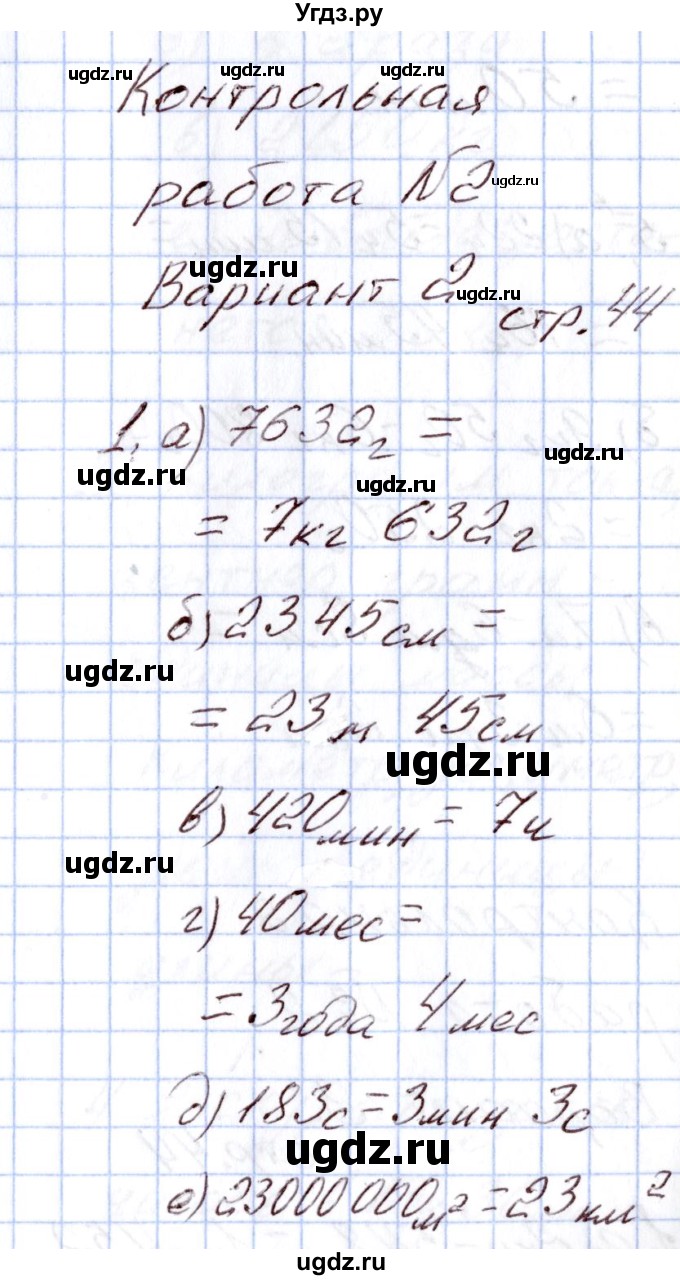 Угдз.ру
ugdz.ru ugdz.ru ugdz.ru
Контрольная
работа №2 ugdz.ru
ugdz.ru
Вариант 2 ugdz.ru
стр. 44
1. а) 7632г =
ugdz.ru ugdz.ru ugdz.ru
= 7кг 632г
б) 2345см =
ugdz.ru
= 23м 45см
ugdz.ru
в) 420мин = 7ч
ugdz.ru
г) 40мес =
= 3года 4мес
д) 183с = 3мин 3с
ugdz.ru
е) 23000000м² = 23км²
ugdz.ru